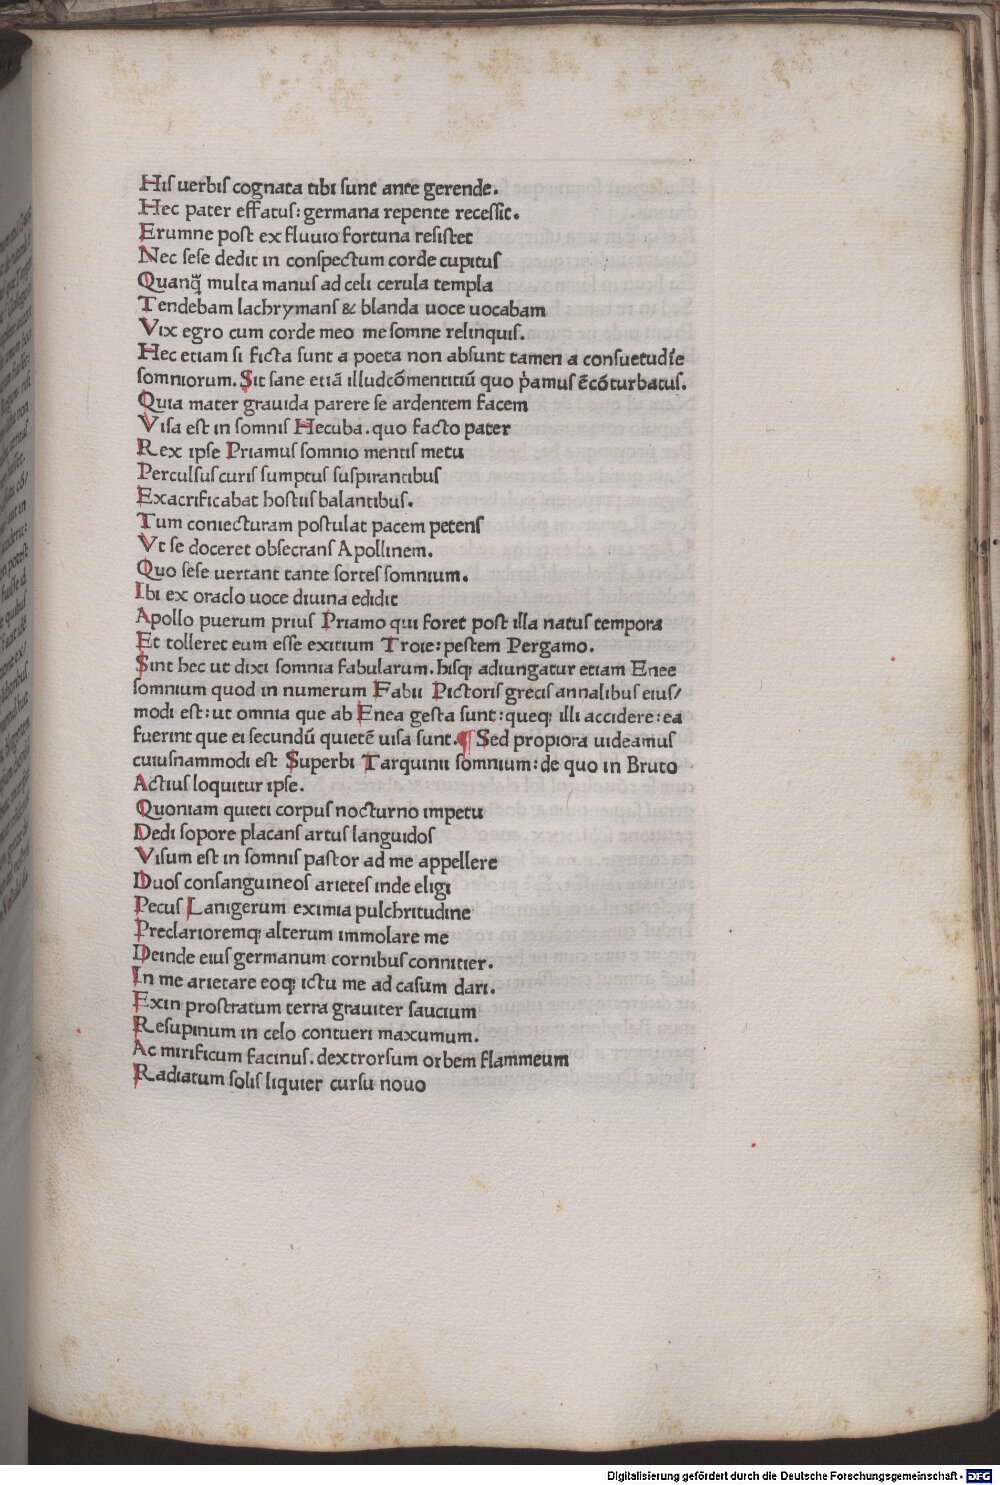 His uerbis cognata tibi sunt ante gerende.
Hec pater effatus: germana repente recessit.
Erumne post ex fluuio fortuna resistet
Nec sese dedit in conspectum corde cupitus
Quanq̃ multa manus ad celi cerula templa
Tendebam lachrymans & blanda uoce uocabam
Vix egro cum corde meo me somne relinquis.
Hec etiam si ficta sunt a poeta non absunt tamen a consuetudīe
somniorum. Sit sane etiā illud cōmentitiū quo p̄amus ē cōturbatus.
Quia mater grauida parere se ardentem facem
Visa est in somnis Hecuba. quo facto pater
Rex ipse Priamus somnio mentis metu
Perculsus curis sumptus suspirantibus
Exacrificabat hostiis balantibus.
Tum coniecturam postulat pacem petens
Vt se doceret obsecrans Apollinem.
Quo sese uertant tante sortes somnium.
Ibi ex oraclo uoce diuina edidit
Apollo puerum prius Priamo qui foret post illa natus tempora
Et tolleret eum esse exitium Troie: pestem Pergamo.
Sint hec ut dixi somnia fabularum. hisq; adiungatur etiam Enee
somnium quod in numerum Fabii Pictoris grecis annalibus eius/
modi est: ut omnia que ab Enea gesta sunt: queq; illi accidere: ea
fuerint que ei secundū quietē uisa sunt. ¶ Sed propiora uideamus
cuiusnammodi est Superbi Tarquinii somnium: de quo in Bruto
Actius loquitur ipse.
Quoniam quieti corpus nocturno impetu
Dedi sopore placans artus languidos
Visum est in somnis pastor ad me appellere
Duos consanguineos arietes inde eligi
Pecus Lanigerum eximia pulchritudine
Preclarioremq; alterum immolare me
Deinde eius germanum cornibus connitier.
In me arietare eoq; ictu me ad casum dari.
Exin prostratum terra grauiter saucium
Resupinum in celo contueri maxumum.
Ac mirificum facinus. dextrorsum orbem flammeum
Radiatum solis liquier cursu nouo
Digitalisierung gefördert durch die Deutsche Forschungsgemeinschaft - DFG